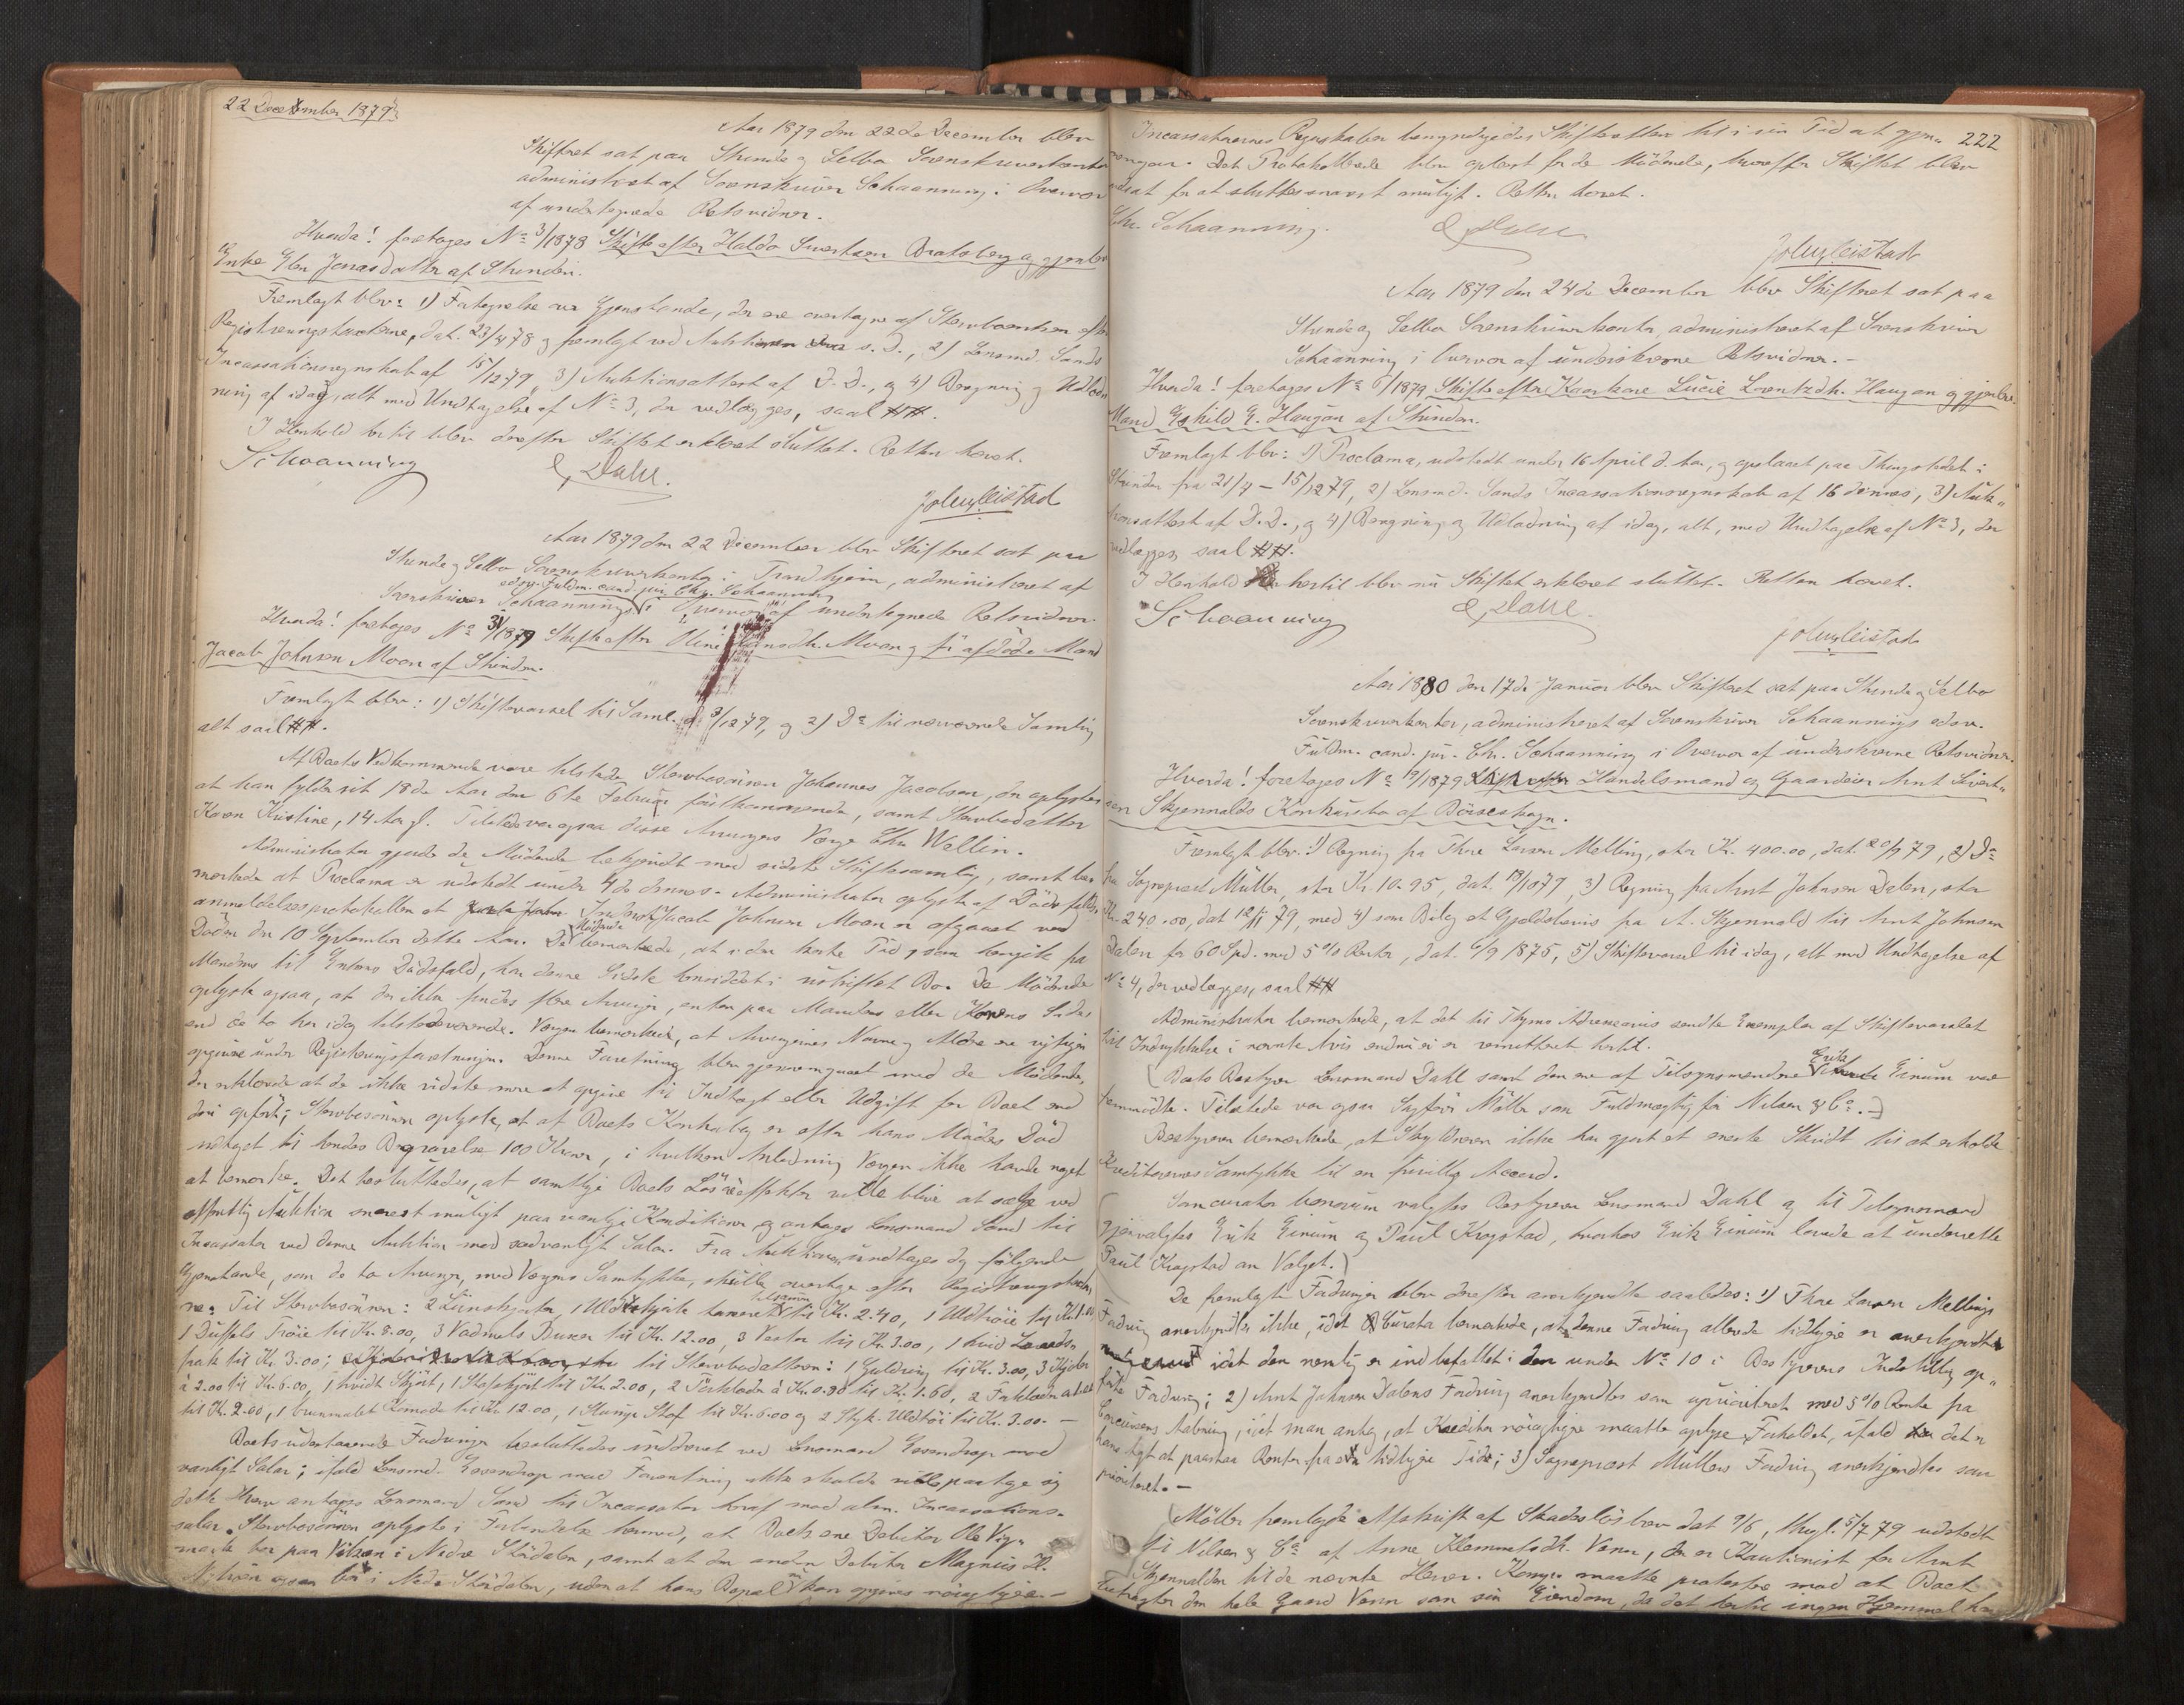 22 December 1879
Aar 1879 den 22de December blev
Skifteret sat paa Strinde og Selbo Sorenskriverkontor
administreret af Sorenskriver Schaanning i Overvær
af undertegnede Retsvidner.
Hvorda! foretages No 3/1878 Skifte efter Haldo Sivertsen Bratsberg og gjenlev
Enke Elen Jonasdatter af Strinden.
Fremlagt blev: 1) Fortegnelse over Gjenstande, der ere overtagne af Stervboenken efter
Registreringstaxterne, dat. 23/4 78 og fremlagt ved Auktionen s. D., 2) Lensmd. Sands
Incassationsregnskab af 15/12 79, 3) Auktionsattest af D. D., og 4) Beregning og Udlod-
ning af idag, alt med Undtagelse af No 3, der vedlægges, saal ##.
I Henhold hertil blev derefter Skiftet erklæret sluttet. Retten hævet.
Schaanning
E, Dahl.
JohsGleistad
Aar 1879 den 22 December blev Skifteret sat paa
Strinde og Selbo Sorenskriverkontor i Trondhjem, administreret af
edsv. Fuldm. cand. jur. Chr. Schaanning
Sorenskriver Schaannings i Overvær af undertegnede Retsvidner.
Hvorda! foretages No 31/1879 Skifte efter Oline Hansdtr. Moan og før afdøde Mand
Jacob Johnsen Moan af Strinden.
Fremlagt blev: 1) Skiftevarsel til Saml. d. 3/12 79, og 2) Do til nærværende Samling
alt saal ##.
Af Boets Vedkommende vare tilstede Stervbosønnen Johannes Jacobsen, der oplyster
at han fylder sit 18de Aar den 6te Februar førstkommende, samt Stervbodatter
Karen Kristine, 14 Aar gl. Tilstede var ogsaa disse Arvingers Værge Chr. Wellin.
Administrator gjorde de Mødende bekjendt med sidste Skiftesamling, samt bem
mærkede at Proclama er udstedt under 4de dennes. Administrator oplyste af Dødsfalds-
anmeldelsesprotokollen at Inderst Jacob Johnsen Moan er afgaaet ved
Mødende
Døden den 10 September dette Aar. De bemærkede, at i den korte Tid som hengik fra
Mandens til Enkens Dødsfald, har denne Sidste hensiddet i uskiftet Bo. De Mødende
oplyste ogsaa, at der ikke findes flere Arvinger, enten paa Mandens eller Konens Side
end de to her idag tilstedeværende. Værgen bemærkede, at Arvingernes Navne og Aldre ere rigtigen
opgivne under Registreringsforretningen. Denne Forretning blev gjennemgaaet med de Mødende,
der erklærede at de ikke vidste mere at opgive til Indtægt eller Udgift for Boet end
deri opført; Stervbosønnen oplyste, at af Boets Kontanter er efter hans Moders Død
udtaget til hendes Begravelse 100 Kroner, i hvilken Anledning Værgen ikke havde noget
at bemærke. Det besluttedes, at samtlige Boets Løsøreeffekter ville blive at sælge ved
offentlig Auktion snarest muligt paa vanlige Konditioner og antages Lensmand Sand til
Incassator ved denne Auktion mod sædvanligt Salær. Fra Auktionen undtages dog følgende
Gjenstande, som de to Arvinger, med Værgens Samtykke, skulle overtage efter Registreringstaxter-
tilsammen
ne: Til Stervbosønnen: 2 Linskjorter, 1 Uldskjorte til Kr. 2.40, 1 Uldtrøie til Kr. 1.00
1 Duffels Trøie til Kr. 8.00, 3 Vadmels Buxer til Kr. 12.00, 3 Veste til Kr. 3.00, 1 hvid
frak til Kr. 3.00; til Stervbodatteren: 1 Guldring til Kr. 3.00, 3 Kjoler
à 2.00 til Kr. 6.00, 1 hvidt Skjørt, 1 Stofskjørt til Kr. 2.00, 2 Tørklæder à Kr. 0.80 til Kr. 1.60, 2 Forklæder à 1.00
til Kr. 2.00, 1 brunmalet Komode til Kr. 12.00, 1 Stump Stof til Kr. 6.00 og 2 Styk. Uldtøi til Kr. 3.00. —
Boets udestaaende Fordringer besluttedes inddrevet ved Lensmand Essendrop mod
vanligt Salær; ifald Lensmd. Essendrop mod Forventning ikke skulde ville paatage sig
dette Hverv antages Lensmand Sand til Incassator heraf mod alm. Incassations-
salær. Stervbosønnen oplyste i Forbindelse hermed, at Boets ene Debitor Ole Vig-
mark bor paa i Nedre Stjørdalen, samt at den anden Debitor Magnus H.
ogsaa bor i Nedre Stjørdalen, uden at hans Bopæl kan opgives nøiagtigere. —
222
Incassatorernes Regnskaber berigtiges Skifteretten til i sin Tid at gjen-
nemgaa. Det Protokollerede blev oplæst for de Mødende, hvorefter Skiftet blev
udsat for at sluttes snarest muligt. Retten hævet.
Chr. Schaanning.
E, Dahl
JohsGleistad
Aar 1879 den 24de December blev Skifteret sat paa
Strinde og Selbo Sorenskriverkontor, administreret af Sorenskriver
Schaanning i Overvær af underskrevne Retsvidner. —
Hvorda! foretages No 6/1879 Skifte efter Kaarkone Lucie Lorentzdtr. Haugan og gjenlev.
Mand Eskild E. Haugan af Strinden.
Fremlagt blev: 1) Proclama, udstedt under 16 April d. Aar, og opslaaet paa Thingstedet i
Strinden fra 21/4 – 15/12 79, 2) Lensmd. Sands Incassationsregnskab af 16 dennes, 3) Auk-
tionsattest af D. D., og 4) Beregning og Udlodning af idag, alt, med Undtagelse af No 3, der
vedlægges, saal ##.
I Henhold hertil blev nu Skiftet erklæret sluttet. Retten hævet.
Schaanning
E, Dahl.
JohsGleistad
Aar 1880 den 17de Januar blev Skifteret sat paa Strinde og Selbo
Sorenskriverkontor, administreret af Sorenskriver Schaannings edsv.
Fuldm. cand. jur. Chr. Schaanning i Overvær af underskrevne Retsvidner.
Hvorda! foretages No 19/1879 Skifte efter Handelsmand og Gaardeier Arnt Sivert-
sen Skjennalds Konkursbo af Børseskogn.
Fremlagt blev: 1) Regning fra Thore Larsen Melling, stor Kr. 400.00, dat. 20/9 79, 2) Do
fra Sogneprest Müller, stor Kr. 10.95, dat. 18/1879, 3) Regning fra Arnt Johnsen Dalen, stor
Kr. 240.00, dat 12/11 79, med 4) som Bilag et Gjeldsbevis fra A. Skjennald til Arnt Johnsen
Dalen for 60 Spd. med 5 % Renter, dat. 6/9 1875, 5) Skiftevarsel til idag, alt med Undtagelse af
No 4, der vedlægges, saal ##
Administrator bemærkede, at det til Thjems Adresseavis sendte Exemplar af Skiftevarslet
til Indrykkelse i nævnte Avis endnu ei er remitteret hertil.
Erik
(Boets Bestyrer Lensmand Dahl samt den ene af Tilsynsmændene Einum var
fremmødte. Tilstede var ogsaa Sagfører Möller som Fuldmægtig for Nilsen & Co. —)
Bestyreren bemærkede, at Skyldneren ikke har gjort et eneste Skridt til at erholde
Kreditorernes Samtykke til en frivillig Accord.
Som curator bonorum valgtes Bestyreren Lensmand Dahl og til Tilsynsmænd
gjenvalgtes Erik Einum og Paul Krogstad, hvorhos Erik Einum lovede at underrette
Paul Krogstad om Valget.)
De fremlagte Fordringer blev derefter anerkjendte saaledes: 1) Thore Larsen Mellings
Fordring anerkjendtes ikke, idet Curator bemærkede, at denne Fordring allerede tidligere er anerkjendt
idet den nemlig er indbefattet i den under No 10 i Bestyrerens Indstilling op-
førte Fordring; 2) Arnt Johnsen Dalens Fordring anerkjendtes som uprioriteret med 5 % Rente fra
Concursens Aabning, idet man antog, at Kreditor nøiagtigere maatte oplyse Forholdet, ifald det er
hans Agt at paastaa Renter fra en tidligere Tid; 3) Sogneprest Müllers Fordring anerkjendtes som
prioriteret. —
(Möller fremlagde Afskrift af Skadesløsbrev dat 9/6, thingl. 5/7 79 udstedt
til Nilsen & Co af Anne Klemmetsdtr. Venn, der er Kautionist for Arnt
Skjennalden til de nævnte Herrer. Komp. maatte protestere mod at Boet
betragter den hele Gaard Venn som sin Eiendom, da det hertil ingen Hjemmel har